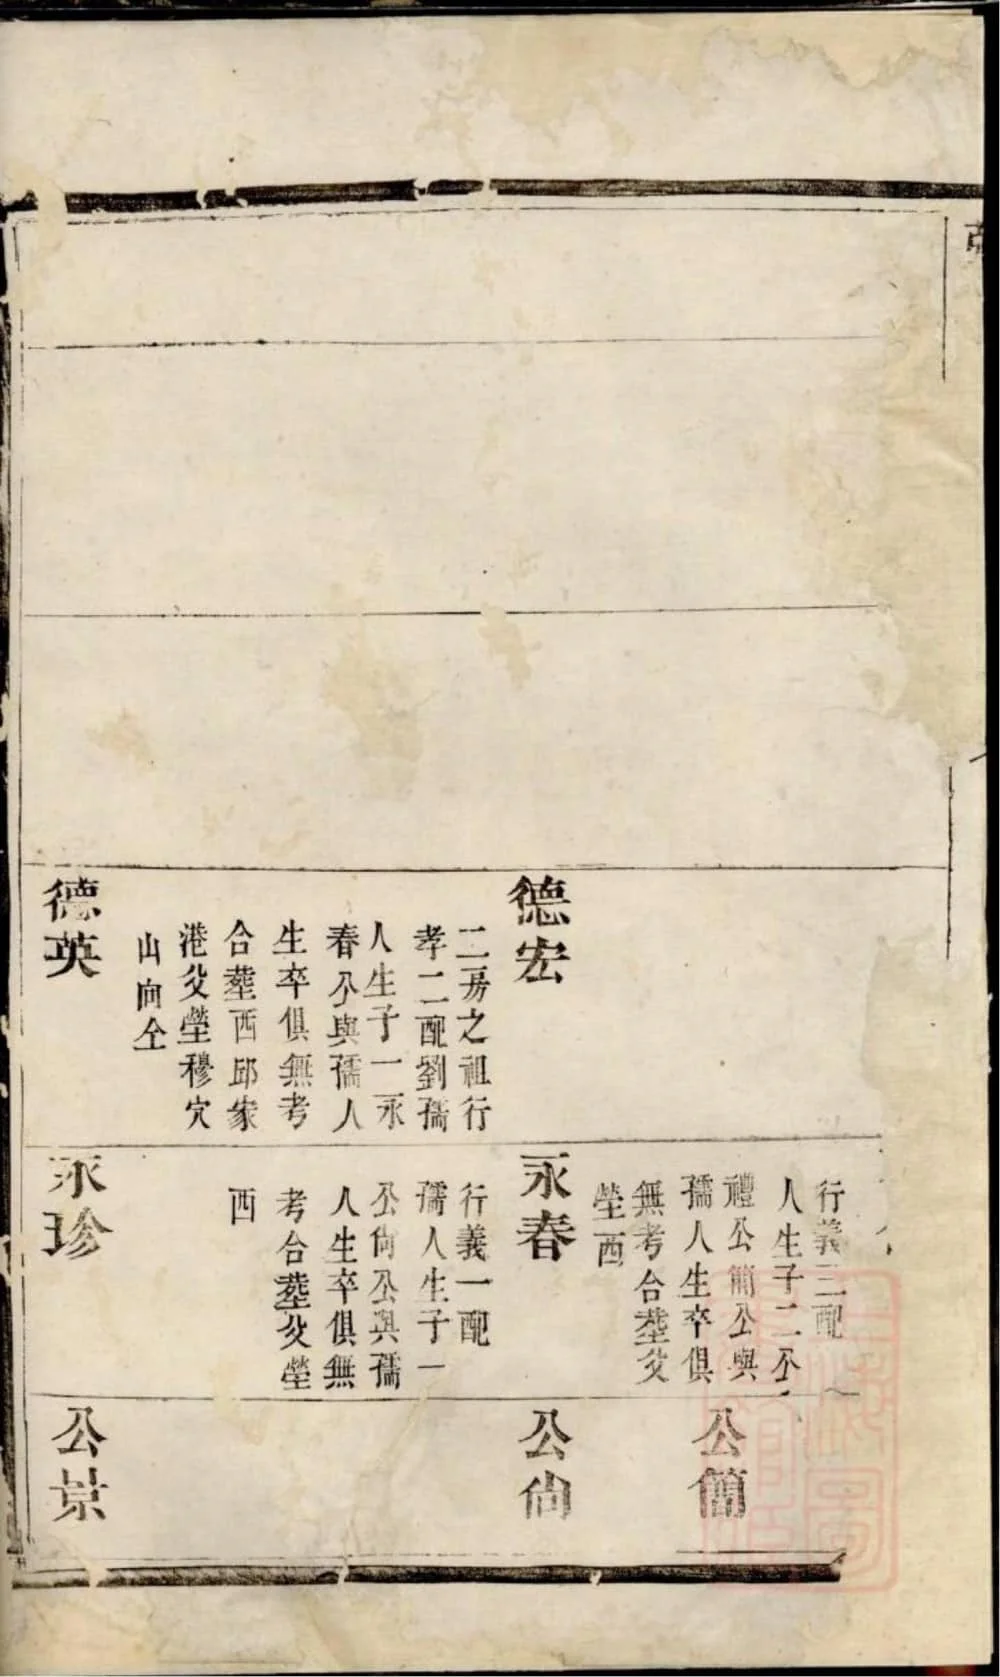 德宏
二房之祖行
孝二配劉孺
人生子一永
春公與孺人
生卒俱無考
合葬西邱家
港父塋穆穴
山向仝
德英
行義三配
人生子二公
禮公簡公與
孺人生卒俱
無考合葬父
塋酉
永春
行義一配
孺人生子一
公尙公與孺
人生卒俱無
考合葬父塋
西
永珍
公簡
公尙
公景